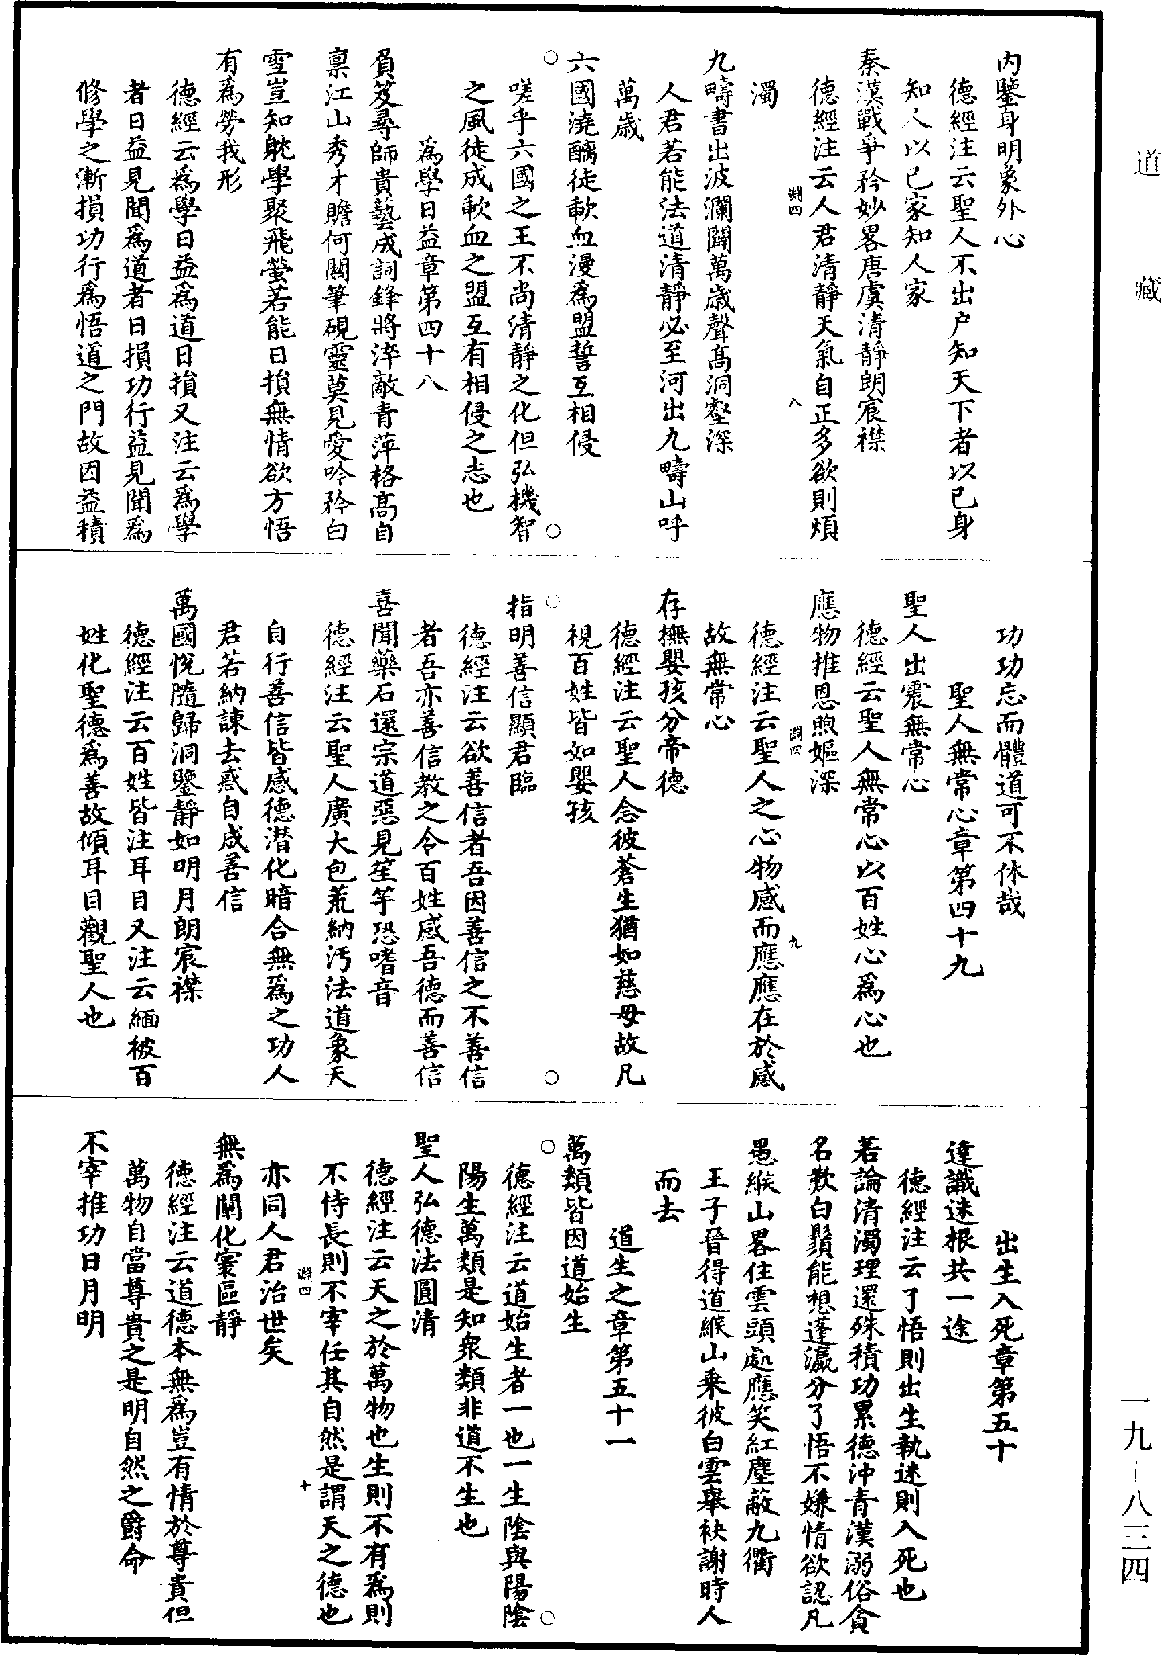 道藏
內鑒身明象外心
德經注云聖人不出户知天下者以己身
知人以己家知人家
秦漢戰爭矜妙畧唐虞清靜朗宸襟
德經注云人君清靜天氣自正多欲則煩
濁
九疇書出波瀾闊萬歲聲高洞壑深
人君若能法道清靜必至河出九疇山呼
萬歲
六國澆醨徒歃血漫爲盟誓互相侵
嗟乎六國之王不尚清靜之化但弘機智
之風徒成歃血之盟互有相侵之志也
爲學日益章第四十八
負笈尋師貴藝成詞鋒將淬敵青萍格高自
稟江山秀才贍何關筆硯靈莫見愛吟矜白
雪豈知躭學聚飛螢若能日損無情欲方悟
有爲勞我形
德經云爲學日益爲道日損又注云爲學
者日益見聞爲道者日損功行益見聞爲
修學之漸損功行爲悟道之門故因益積
功功忘而體道可不休哉
聖人無常心章第四十九
聖人出震無常心
德經云聖人無常心以百姓心爲心也
應物推恩煦嫗深
德經注云聖人之心物感而應應在於感
故無常心
存撫嬰孩分帝德
德經注云聖人念彼蒼生猶如慈母故凡
視百姓皆如嬰孩
指明善信顯君臨
德經注云欲善信者吾因善信之不善信
者吾亦善信教之令百姓感吾德而善信
喜聞藥石還宗道惡見笙竽恐嗜音
德經注云聖人廣大包荒納污法道象天
自行善信皆感德潛化暗合無爲之功人
君若納諫去惑自成善信
萬國悅隨歸洞鑒靜如明月朗宸襟
德經注云百姓皆注耳目又注云緬彼百
姓化聖德爲善故傾耳目觀聖人也
出生入死章第五十
達識迷根共一途
德經注云了悟則出生執迷則入死也
若論清濁理還殊積功累德沖青漢溺俗貪
名歎白鬚能想蓬瀛分了悟不嫌情欲認凡
愚緱山畧住雲頭處應笑紅塵蔽九衢
王子晉得道緱山乘彼白雲舉袂謝時人
而去
道生之章第五十一
萬類皆因道始生
德經注云道始生者一也一生陰與陽陰
陽生萬類是知衆類非道不生也
聖人弘德法圓清
德經注云天之於萬物也生則不有爲則
不恃長則不宰任其自然是謂天之德也
亦同人君治世矣
無爲闡化寰區靜
德經注云道德本無爲豈有情於尊貴但
萬物自當尊貴之是明自然之爵命
不宰推功日月明
一九-八三四